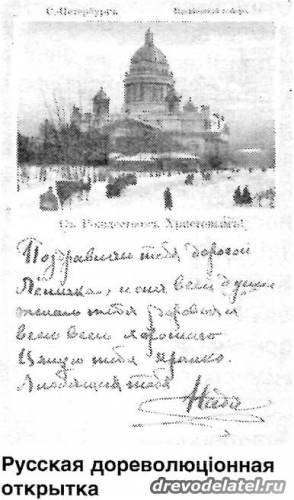 С.-Петербургъ.
Съ Рождествомъ Христовымъ!
Поздравляю тебя дорогой
всей души
желаю тебя здоровья и
всего всего хорошаго
Цѣлую тебя крепко.
Любящая тебя
Надя
Русская дореволюціонная
открытка
drevodelatel.ru